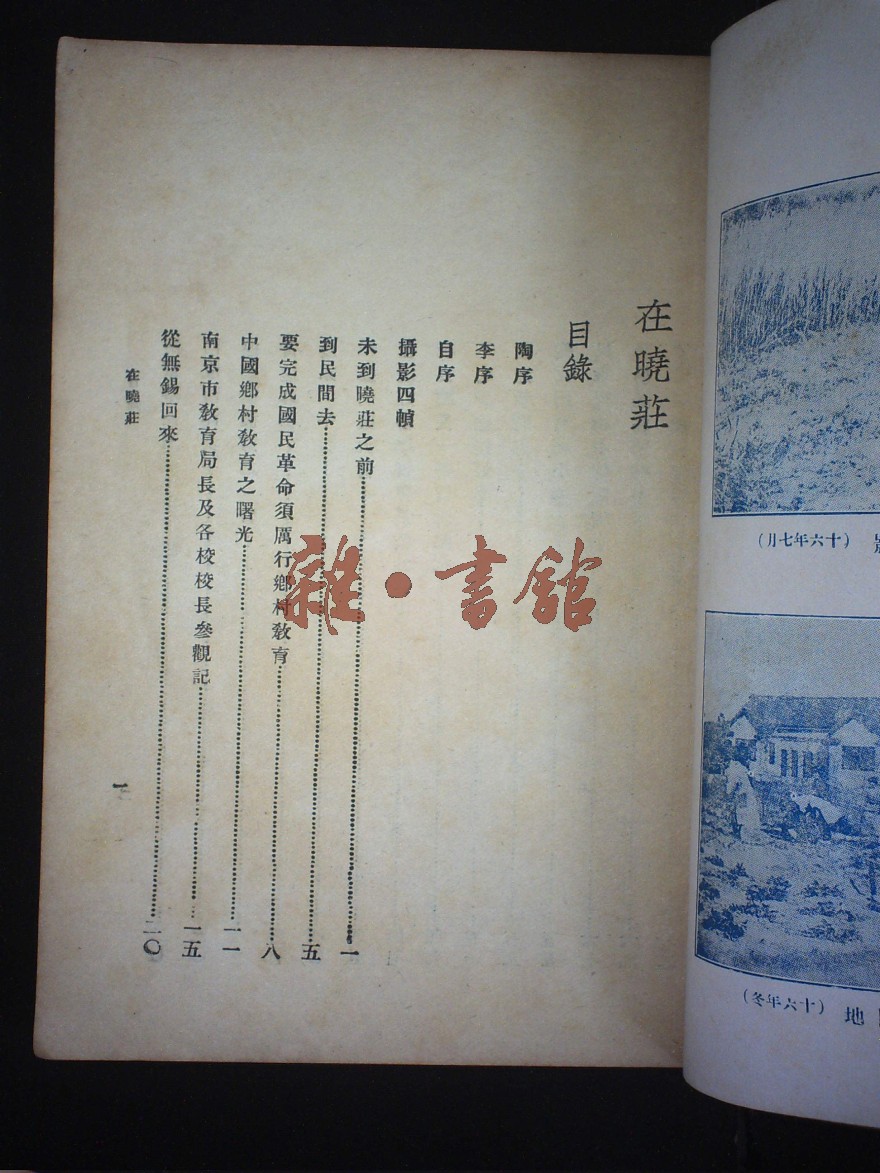 在曉莊
目錄
陶序
李序
自序
攝影四幀
未到曉莊之前……一
到民間去……五
要完成國民革命須厲行鄉村教育……八
中國鄉村教育之曙光……一一
南京市教育局長及各校校長參觀記……一五
從無錫回來……二〇
在曉莊
一
雜·書館
(十六年七月)
地
(十六年冬)